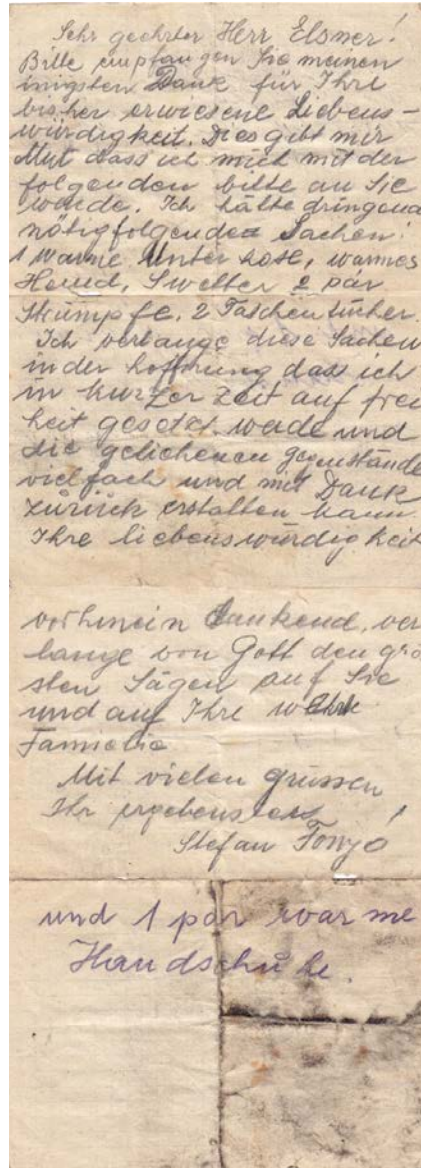 Sehr geehrter Herr Elsner!
Bitte empfangen Sie meinen
inigsten Dank für Ihre
bisher erwiesene Liebens-
würdigkeit. Dies gibt mir
Mut dass ich mich mit der
folgenden bitte an Sie
wende. Ich hätte dringend
nötig folgende Sachen:
1 warme Unterhose, warmes
Hemd, Swetter 2 pár
Strümpfe, 2 Taschentücher.
Ich verlange diese Sachen
in der hoffnung dass ich
in kurzer Zeit auf frei
heit gesetzt wede und
die geliehenen gegenstände
vielfach und mit Dank
zurück erstatten kann.
Ihre liebenswürdigkeit
vorhinein dankend, ver
lange von Gott den grö
sten Sägen auf Sie
und auf Ihre
Famielie
Mit vielen grüssen
Ihr ergebenster
Stefan Fonyó
und 1 pár warme
Handschuhe.